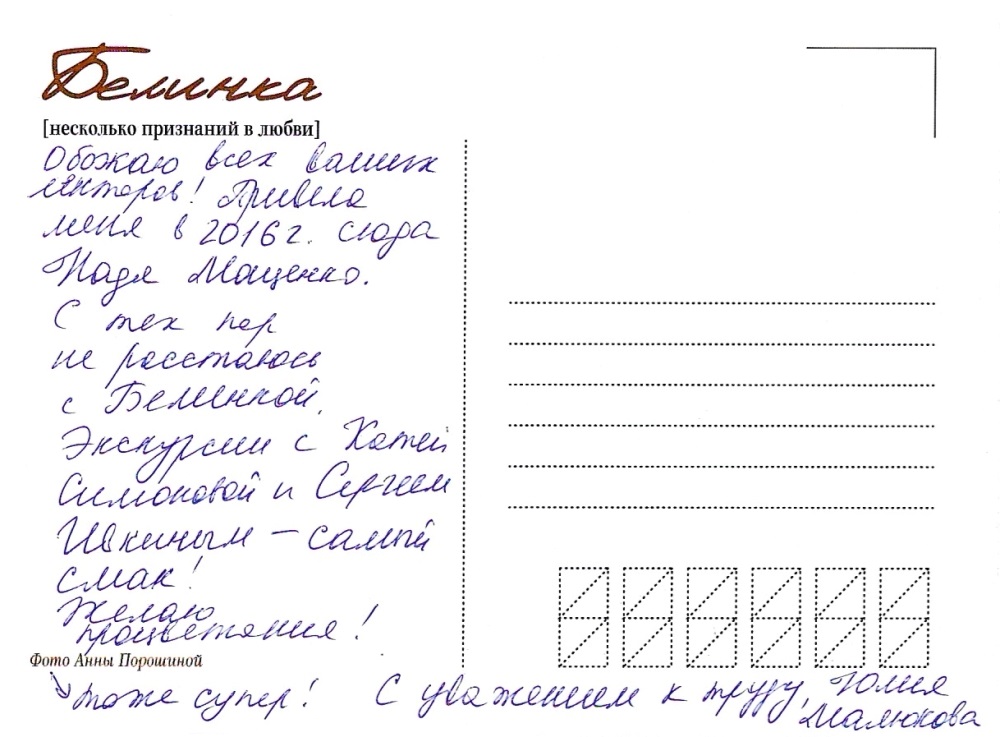 Белинка
[несколько признаний в любви]
Обожаю всех ваших
лекторов! Привела
меня в 2016 г. сюда
Надя Маценко.
С тех пор
не расстаюсь
с Белинкой.
Экскурсии с Катей
Симоновой и Сергеем
Ивкиным – самый
смак!
Желаю
процветания!
Фото Анны Порошиной
тоже супер! С уважением к труду, Юлия
Малюкова